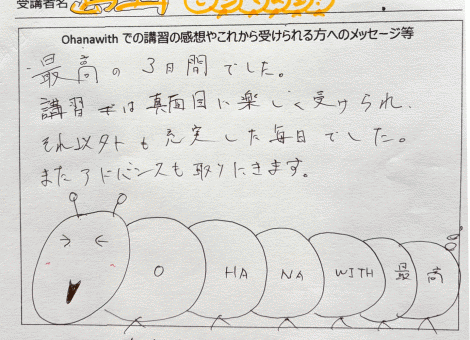 受講者名
Ohanawith での講習の感想やこれから受けられる方へのメッセージ等
最高の3日間でした。
講習は真面目に楽しく受けられ、
それ以外も充実した毎日でした。
またアドバンスも取りにきます。
O HA NA WITH 最高